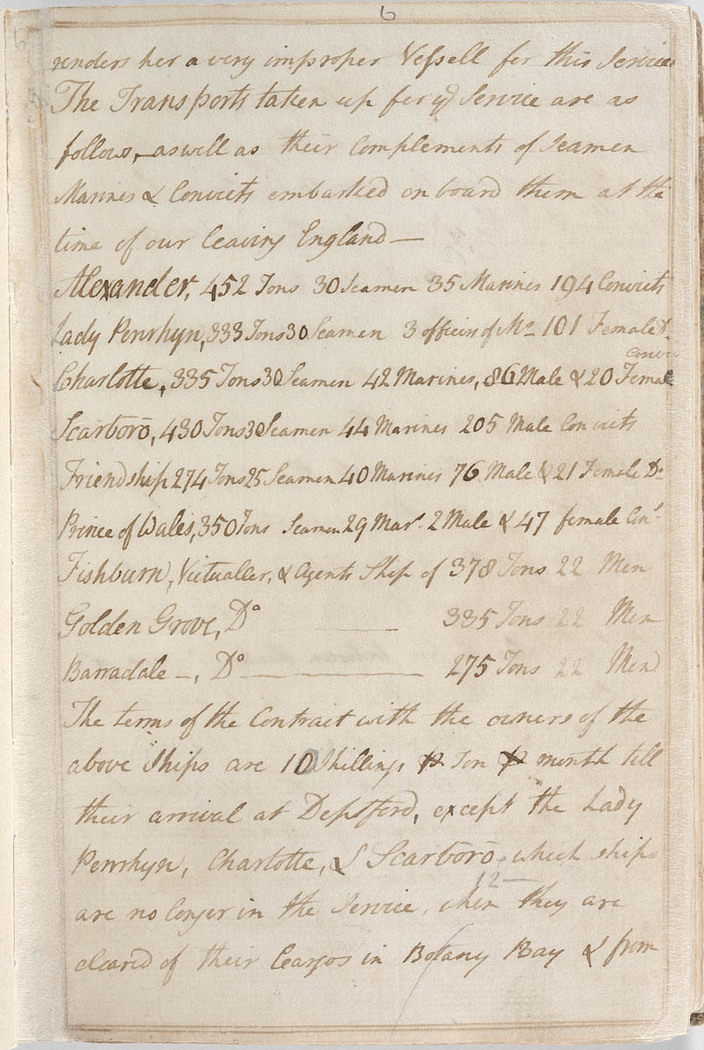 6
renders her a very improper Vessell for this Service
The Transports taken up for ye Service are as
follows, as well as their Complements of Seamen
Marines & Convicts embarked on board them at the
time of our leaving England —
Alexander, 452 Tons 30 Seamen 35 Marines 194 Convicts
Lady Penrhyn, 333 Tons 30 Seamen 3 officers of Ms 101 Female Do
Convic
Charlotte, 335 Tons 30 Seamen 42 Marines, 86 Male & 20 Female
Scarboro, 430 Tons 30 Seamen 44 Marines 205 Male Convicts
Friendship 274 Tons 25 Seamen 40 Marines 76 Male & 21 Female Do
Prince of Wales, 350 Tons Seamen 29 Mars 2 Male & 47 female Cons
Fishburn, Victualler, & Agents Ship of 378 Tons 22 Men
Golden Grove, Do —— 335 Tons 22 Men
Barradale —, Do —— 275 Tons 22 Men
The terms of the Contract with the owners of the
above Ships are 10 Shillings ⅌ Ton ⅌ month till
their arrival at Deptford, except the Lady
Penrhyn, Charlotte, & Scarboro which ships
12 —
are no longer in the Service, when they are
cleared of their Cargos in Botany Bay & from